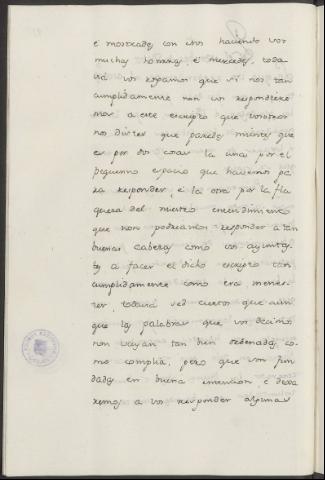 é mostrades con ellos haciendo vos
muchas honrras é mercedes, toda
via vos rogamos que si nos tan
cumplidamente non vos respondiere
mos a este escripto que vosotros
nos distes que paredes mientes que
es por dos cosas la una por el
pequenno espacio que havemos pa
ra responder, é la otra por la fla
queza del nuestro entendimiento
que non podriamos responder a tan
buenas cabezas como vos ayuntas
tes a facer el dicho escripto tan
cumplidamente como era menes
ter, todavia sed ciertos que aun
que las palabras que vos decimos
non vayan tan bien ordenadas co
mo complia, pero que van fun
dadas en buena intencion, é dexa
remos a vos responder algunas